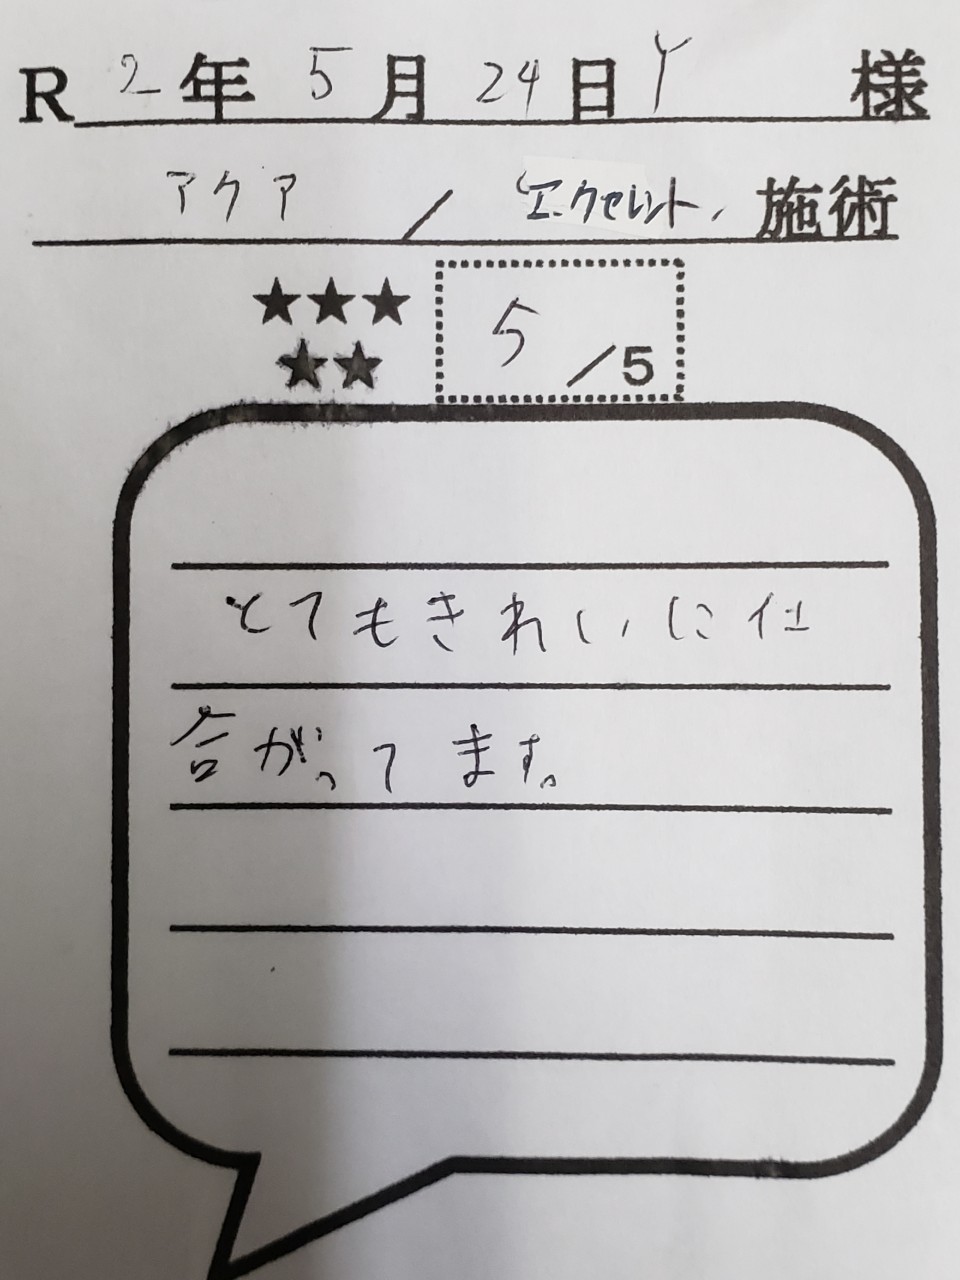 R 2年 5月 24日 Y 様
アクア / エクセレント 施術
★★★
★★
5 /5
とてもきれいに仕
合がってます。